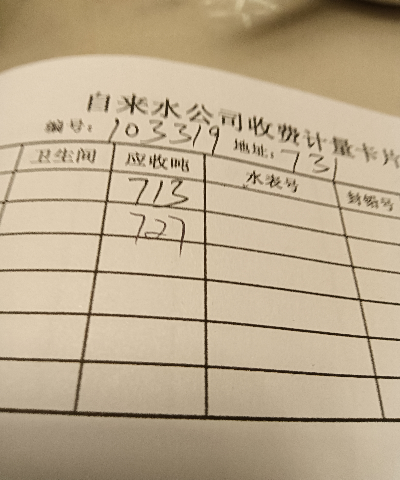 自来水公司收费计量卡片
编号: 103319 地址: 731
卫生间 应收吨 水表号 封铅号
713
727